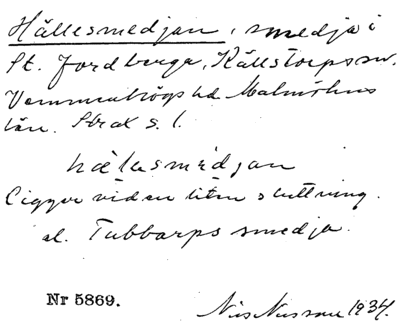 Hällesmedjan, smedja i
St. Jordberga, Källstorps sn.
Vemmenhögs hd. Malmöhus
län. Strax s. l.
hälasmedjan
Ligger vid en liten sluttning.
el. Tubbarps smedja.
Nr 5869.
Nils Nilsson 1934.